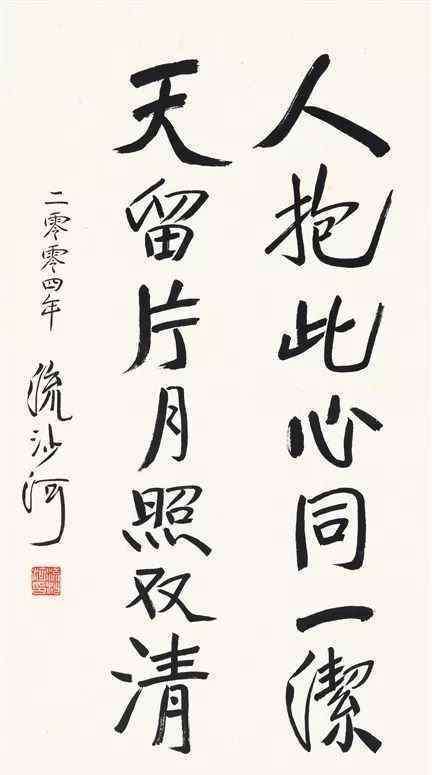 人抱此心同一潔
天留片月照双清
二零零四年 流沙河